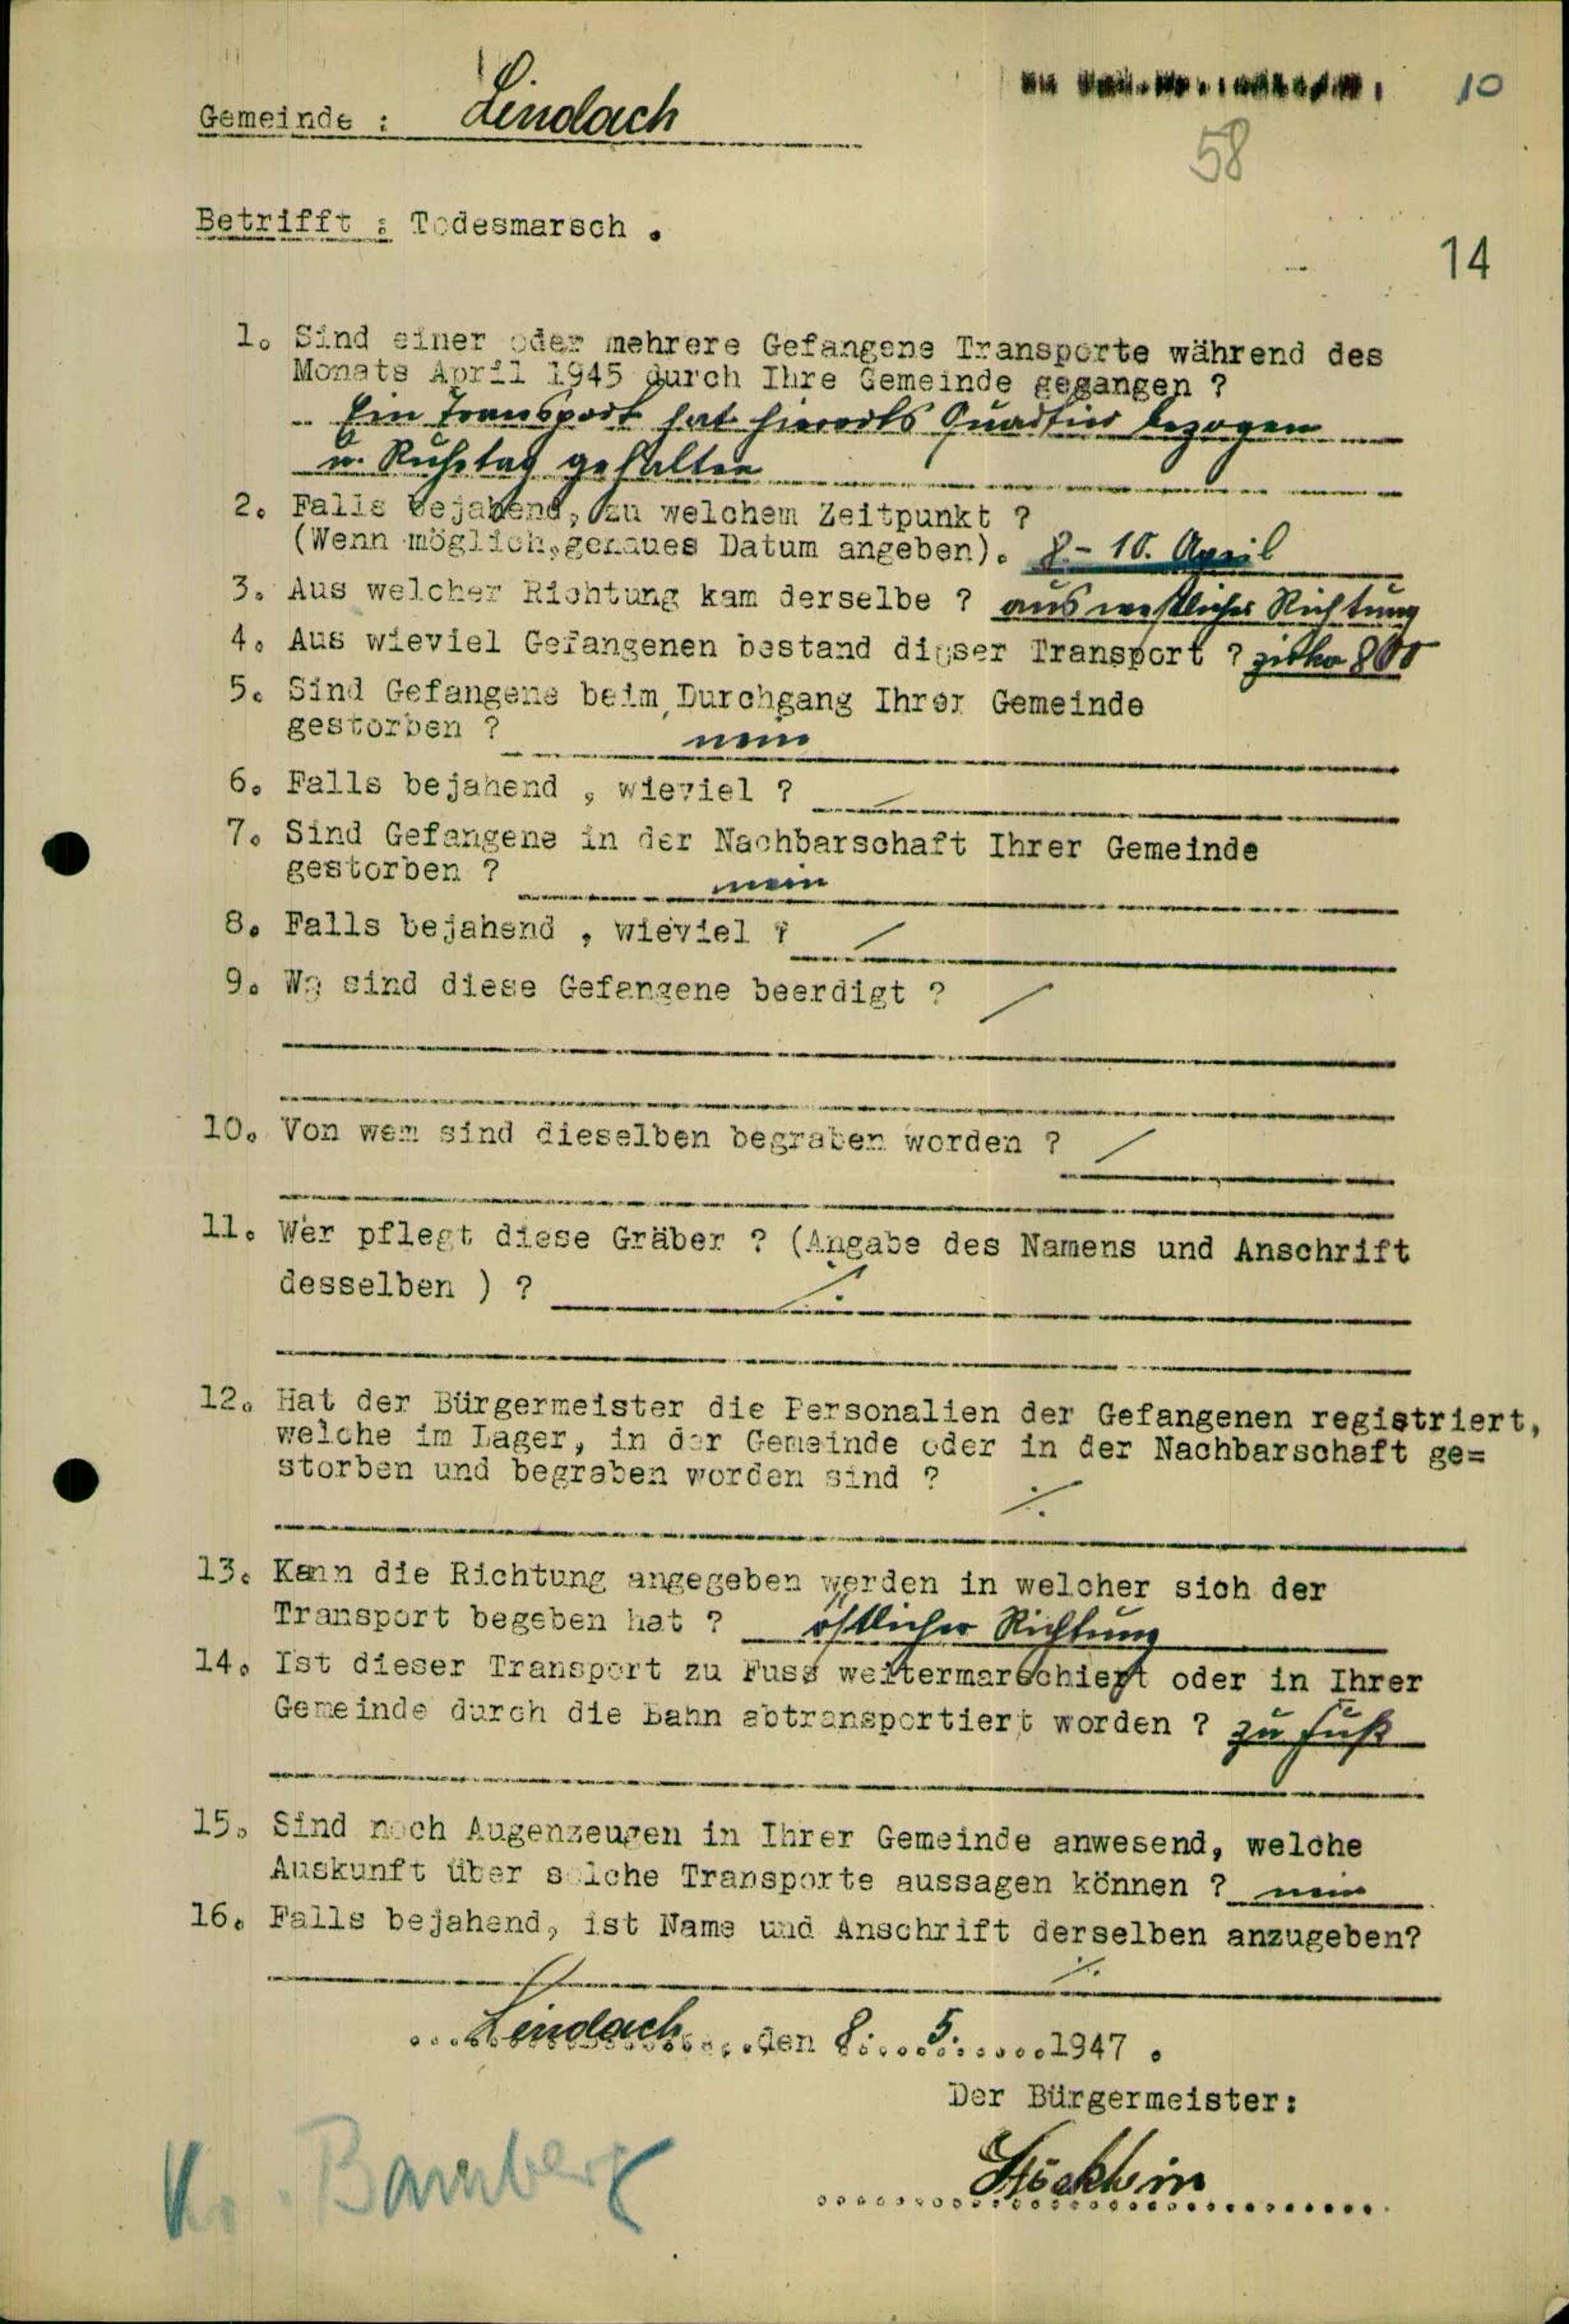 10
Gemeinde : Lindach
58
Betrifft : Todesmarsch .
14
1. Sind einer oder mehrere Gefangene Transporte während des
Monats April 1945 durch Ihre Gemeinde gegangen ?
Ein Transport hat hierorts Quartier bezogen
u. Ruhetag gehalten
2. Falls bejahend, zu welchem Zeitpunkt ?
(Wenn möglich, genaues Datum angeben). 8.- 10. April
3. Aus welcher Richtung kam derselbe ? aus westlicher Richtung
4. Aus wieviel Gefangenen bestand dieser Transport ? zirka 800
5. Sind Gefangene beim Durchgang Ihrer Gemeinde
gestorben ? nein
6. Falls bejahend , wieviel ? /
7. Sind Gefangene in der Nachbarschaft Ihrer Gemeinde
gestorben ? nein
8. Falls bejahend , wieviel ? /
9. Wo sind diese Gefangene beerdigt ? /
10. Von wem sind dieselben begraben worden ? /
11. Wer pflegt diese Gräber ? (Angabe des Namens und Anschrift
desselben ) ? ./.
12. Hat der Bürgermeister die Personalien der Gefangenen registriert,
welche im Lager, in der Gemeinde oder in der Nachbarschaft ge=
storben und begraben worden sind ? ./.
13. Kann die Richtung angegeben werden in welcher sich der
Transport begeben hat ? östlicher Richtung
14. Ist dieser Transport zu Fuss weitermarschiert oder in Ihrer
Gemeinde durch die Bahn abtransportiert worden ? zu Fuß
15. Sind noch Augenzeugen in Ihrer Gemeinde anwesend, welche
Auskunft über solche Transporte aussagen können ? nein
16. Falls bejahend, ist Name und Anschrift derselben anzugeben?
./.
Lindach, den 8. 5. 1947 .
Der Bürgermeister:
Kr. Bamberg